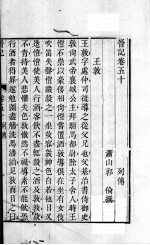 晉記卷五十
列傳
蕭山 郭倫撰
王敦
王敦字處仲司徒導之從兄也父基治書侍御史
敦尚武帝襄城公主拜駙馬都尉除太子舍人時王
愷石崇以豪侈相尚愷嘗置酒敦導俱在坐有女伎
吹笛小失聲韻愷一坐改容敦神色自若他日又
造愷愷使美人行酒客飲不盡輒殺之酒及敦敦故
不肯持美人悲懼失色而敦傲然不視導素不能飲恐
行酒者得罪遂勉強盡觴洗馬潘滔見敦而目之